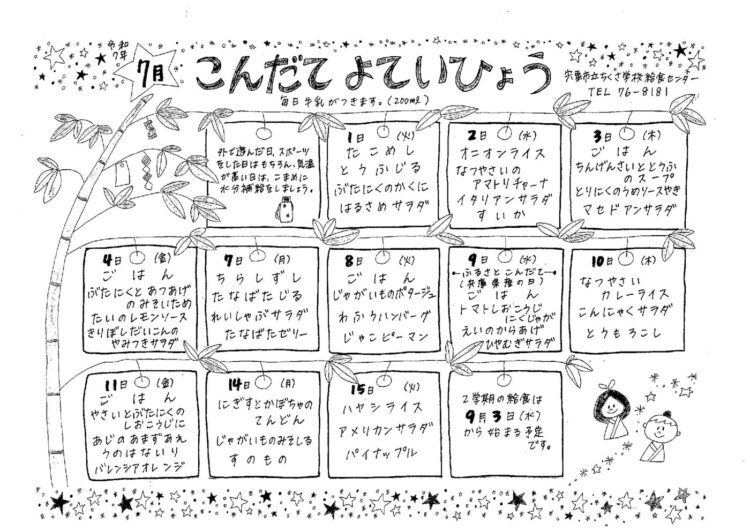 令和
7年
7月
こんだてよていひょう
宍粟市立ちくさ学校給食センター
TEL 76-8181
毎日牛乳がつきます。(200ml)
外で遊んだ日、スポーツ
をした日はもちろん、気温
が高い日は、こまめに
水分補給をしましょう。
1日 (火)
たこめし
とうふじる
ぶたにくのかくに
はるさめサラダ
2日 (水)
オニオンライス
なつやさいの
アマトリチャーナ
イタリアンサラダ
すいか
3日 (木)
ごはん
ちんげんさいととうふ
のスープ
とりにくのうめソースやき
マセドアンサラダ
4日 (金)
ごはん
ぶたにくとあつあげ
のみそいため
たいのレモンソース
きりぼしだいこんの
やみつきサラダ
7日 (月)
ちらしずし
たなばたじる
れいしゃぶサラダ
たなばたゼリー
8日 (火)
ごはん
じゃがいものポタージュ
わふうハンバーグ
じゃこピーマン
9日 (水)
ふるさとこんだて
(兵庫県産の日)
ごはん
トマトしおこうじ
にくじゃが
えいのからあげ
ひやむぎサラダ
10日 (木)
なつやさい
カレーライス
こんにゃくサラダ
とうもろこし
11日 (金)
ごはん
やさいとぶたにくの
しおこうじに
あじのあまずあえ
うのはないり
バレンシアオレンジ
14日 (月)
にぎすとかぼちゃの
てんどん
じゃがいものみそしる
すのもの
15日 (火)
ハヤシライス
アメリカンサラダ
パイナップル
2学期の給食は
9月3日(水)
から始まる予定
です。